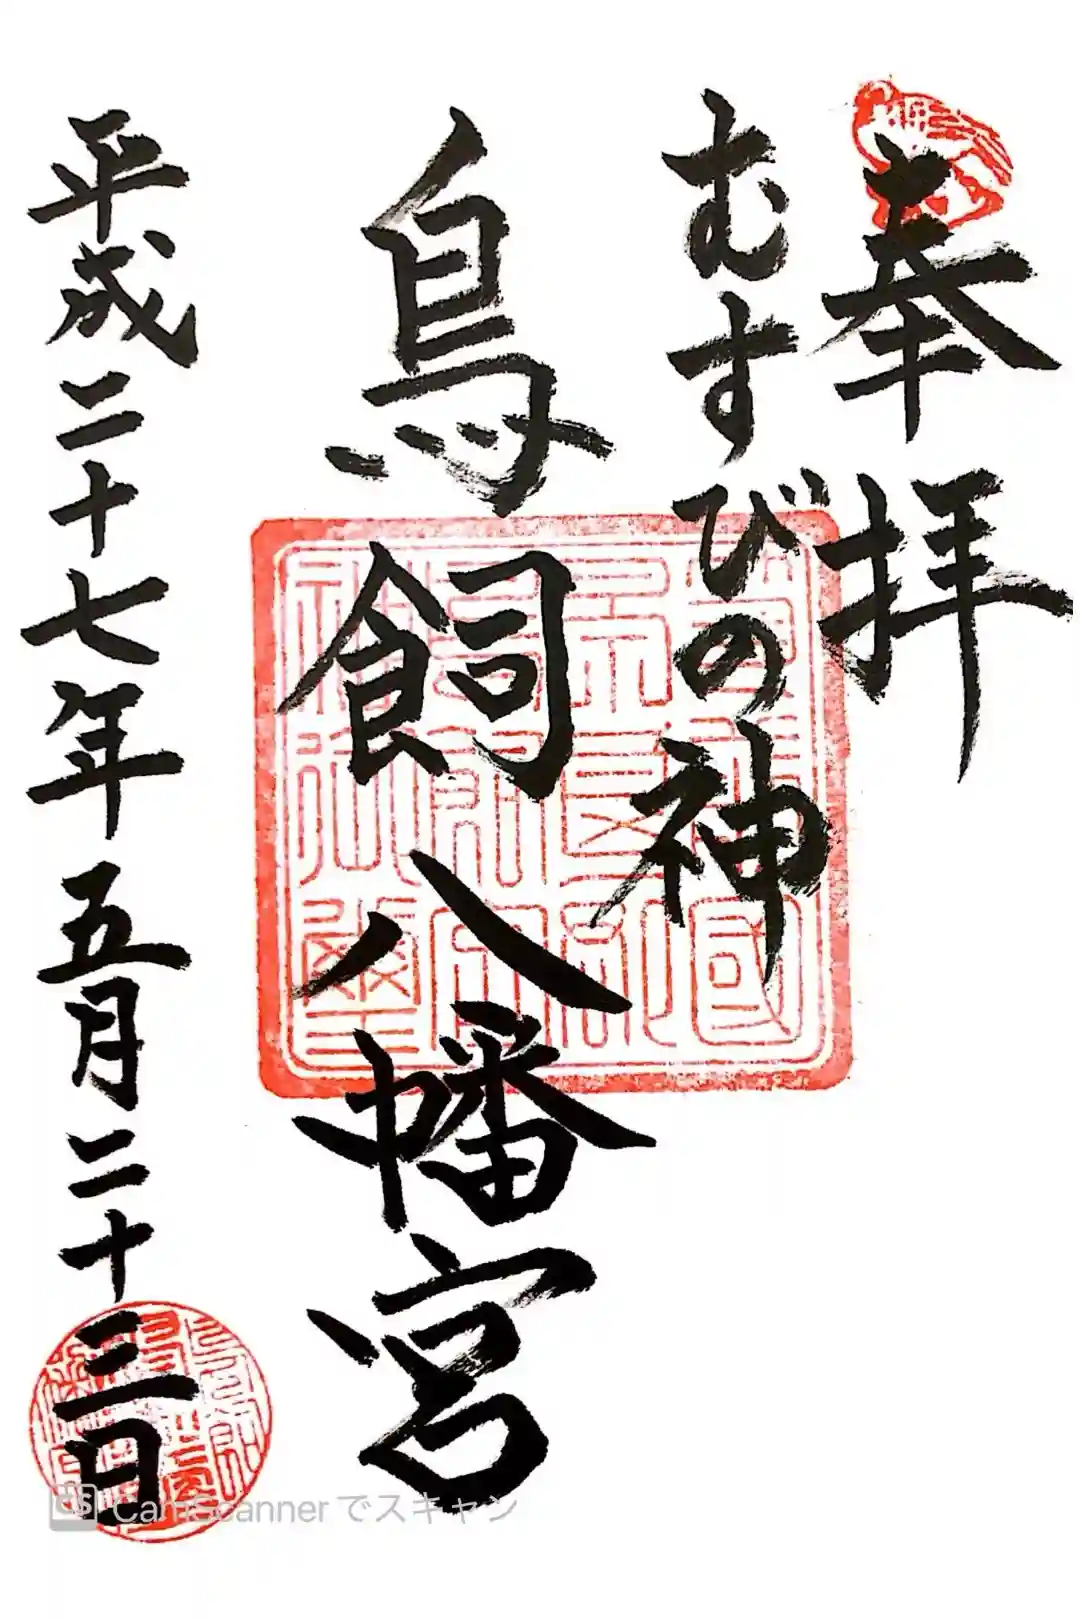 奉拝
むすびの神
鳥飼八幡宮
平成二十七年五月二十三日
CS CamScannerでスキャン